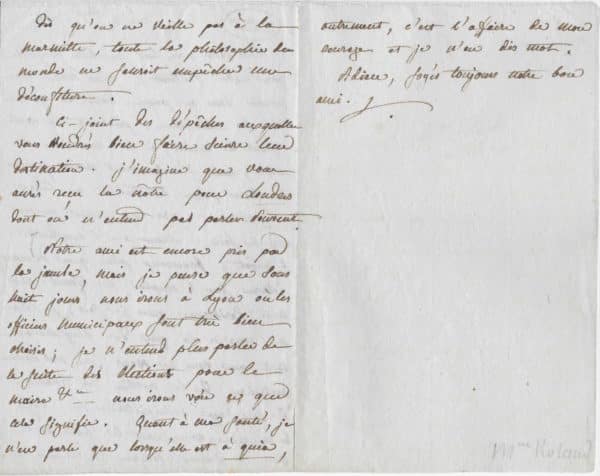 dès qu'on ne veille pas à la
marmitte, toute la philosophie du
monde ne sauroit empêcher une
déconfiture.
Ci-joint des dépêches auxquelles
vous voudrés bien faire suivre leur
destination. j'imagine que vous
aurés reçu la nôtre pour Londres
dont on n'entend pas parler souvent.
Notre ami est encore pris par
la jambe, mais je pense que sous
huit jours, nous irons à Lyon où les
officiers municipaux sont très bien
choisis; je n'entend plus parler de
la suite des élections pour le
maire &c nous irons voir ce que
cela signifie. Quant à ma santé, je
n'en parle que lorsqu'elle est à quia,
autrement, c'est l'affaire de mon
courage et je n'en dis mot.
Adieu, soyés toujours notre bon
ami.
Mme Roland